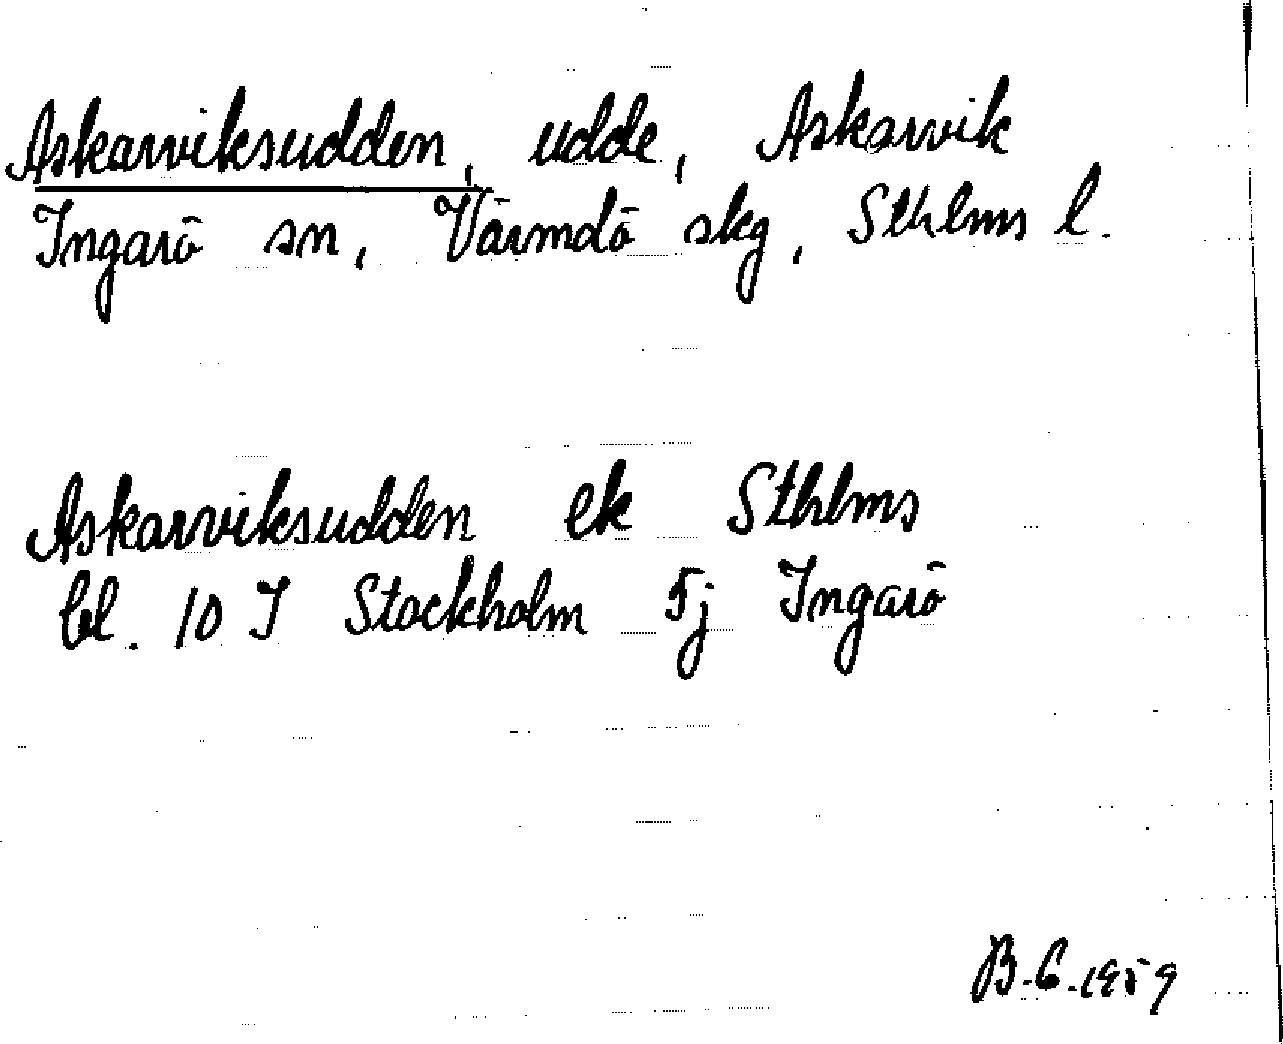 Askarviksudden, udde, Askarvik
Ingarö sn, Värmdö skg, Sthlms l.
Askarviksudden ek Sthlms
bl. 10 I Stockholm 5j Ingarö
B.C.1959